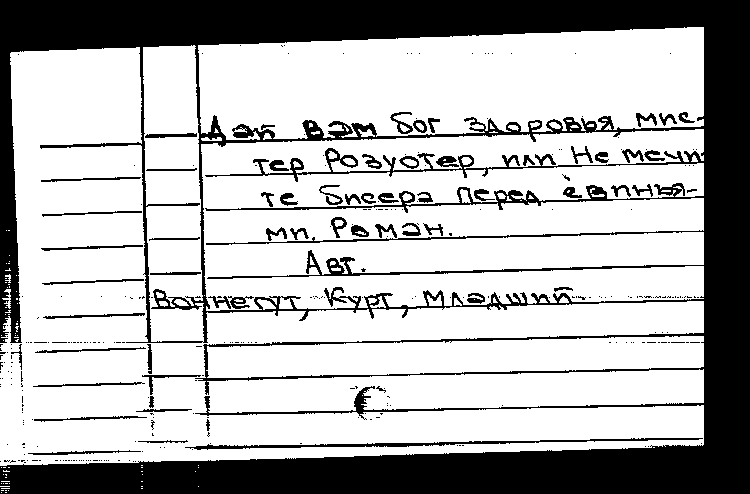 Дай вам бог здоровья, мис-
тер Розуотер, или Не мечи-
те бисера перед свинья-
ми. Роман.
Авт.
Воннегут, Курт, младший